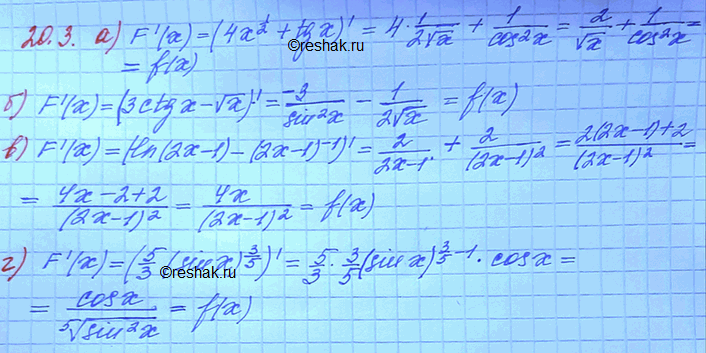 20.3. а) F'(x) = (4x^{1/2} + tg x)' = 4 · 1/(2√x) + 1/cos²x = 2/√x + 1/cos²x =
©reshak.ru
= f(x)
б) F'(x) = (3ctg x − √x)' = −3/sin²x − 1/(2√x) = f(x)
в) F'(x) = (ln(2x−1) − (2x−1)^{−1})' = 2/(2x−1) + 2/(2x−1)² = (2(2x−1)+2)/(2x−1)² =
= (4x−2+2)/(2x−1)² = 4x/(2x−1)² = f(x)
г) F'(x) = (5/3 (sin x)^{3/5})' = 5/3 · 3/5 (sin x)^{3/5 −1} · cos x =
©reshak.ru
= cos x/⁵√(sin²x) = f(x)